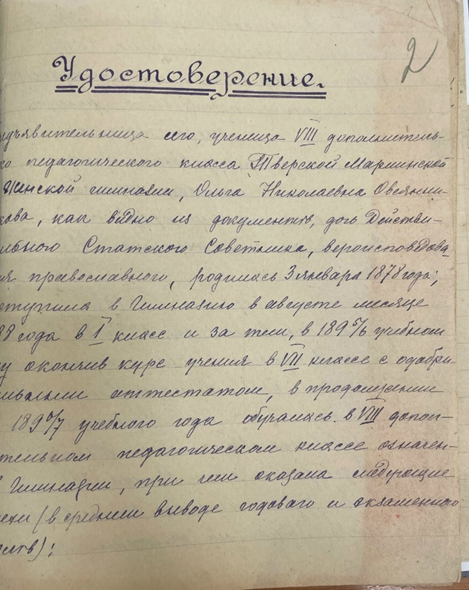 2
Удостоверение.
едъявительница сего, ученица VIII дополнитель-
го педагогического класса Тверской Мариинской
Женской гимназии, Ольга Николаевна Овсянни-
кова, как видно из документов, дочь Действи-
тельного Статского Советника, вероисповеда-
ния православного, родилась 3 января 1878 года;
оступила в Гимназию в августе месяце
88 года в I класс и за тем, в 1895/6 учебном
ду окончив курс учения в VII классе с одобри-
тельным аттестатом, в продолжении
1896/7 учебного года обучалась в VIII допол-
ительном педагогическом классе означен-
й Гимназии, при чем оказала следующие
пехи (в среднем выводе годоваго и экзаменного
: